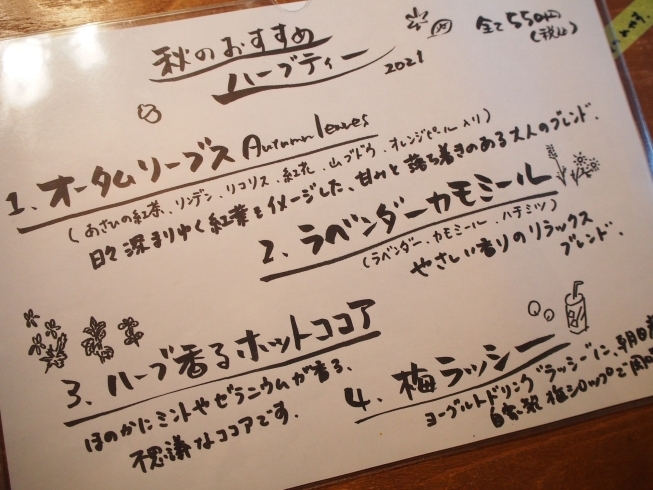 秋のおすすめ
ハーブティー 2021
全て550円
(税込)
1、オータムリーブス Autumn leaves
(あさひの紅茶、リンデン、リコリス、紅花、山ブドウ、オレンジピール入り)
日々深まりゆく紅葉をイメージした、甘みと落ち着きのある大人のブレンド.
2、ラベンダーカモミール
(ラベンダー、カモミール、ハチミツ)
やさしい香りのリラックス
ブレンド.
3、ハーブ香るホットココア
ほのかにミントやゼラニウムが香る、
不思議なココアです.
4、梅ラッシー
ヨーグルトドリンク"ラッシー"に、朝日
自家製 梅シロップで